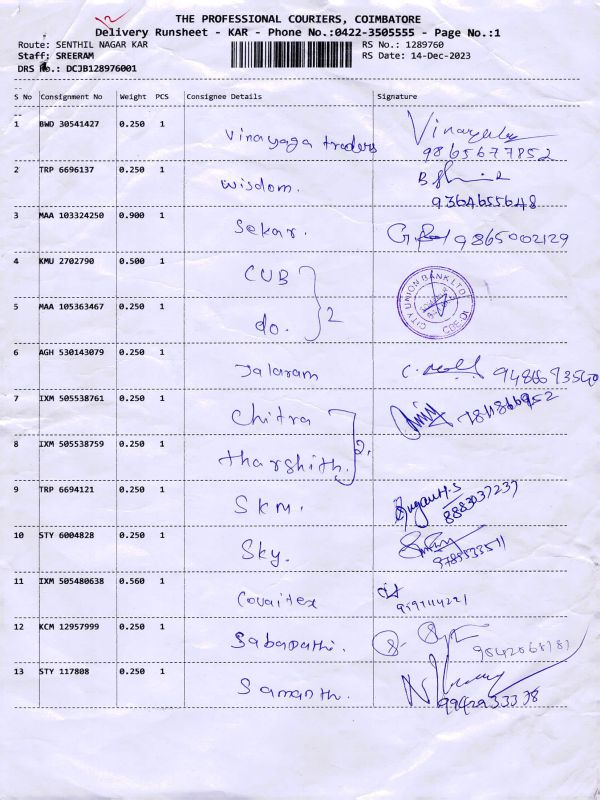 THE PROFESSIONAL COURIERS, COIMBATORE
Delivery Runsheet - KAR - Phone No.:0422-3505555 - Page No.:1
Route: SENTHIL NAGAR KAR RS No.: 1289760
Staff: SREERAM RS Date: 14-Dec-2023
DRS No.: DCJB128976001
S No Consignment No Weight PCS Consignee Details Signature
1 BWD 30541427 0.250 1 Vinayaga traders 9865677852
2 TRP 6696137 0.250 1 wisdom. 9364655648
3 MAA 103324250 0.900 1 Sekar. 9865002129
4 KMU 2702790 0.500 1 CUB CITY UNION BANK LTD
5 MAA 105363467 0.250 1 do. 2
6 AGH 530143079 0.250 1 Jalaram
7 IXM 505538761 0.250 1 Chitra
8 IXM 505538759 0.250 1 tharshith. 2.
9 TRP 6694121 0.250 1 SKM. 8883037237
10 STY 6004828 0.250 1 Sky.
11 IXM 505480638 0.560 1 Covaitex
12 KCM 12957999 0.250 1 Sabapathi.
13 STY 117808 0.250 1 Samanth.